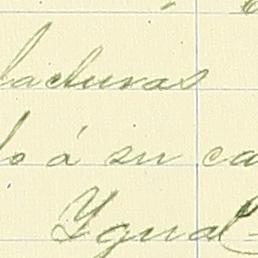 laduras
do á su ca
Ygual